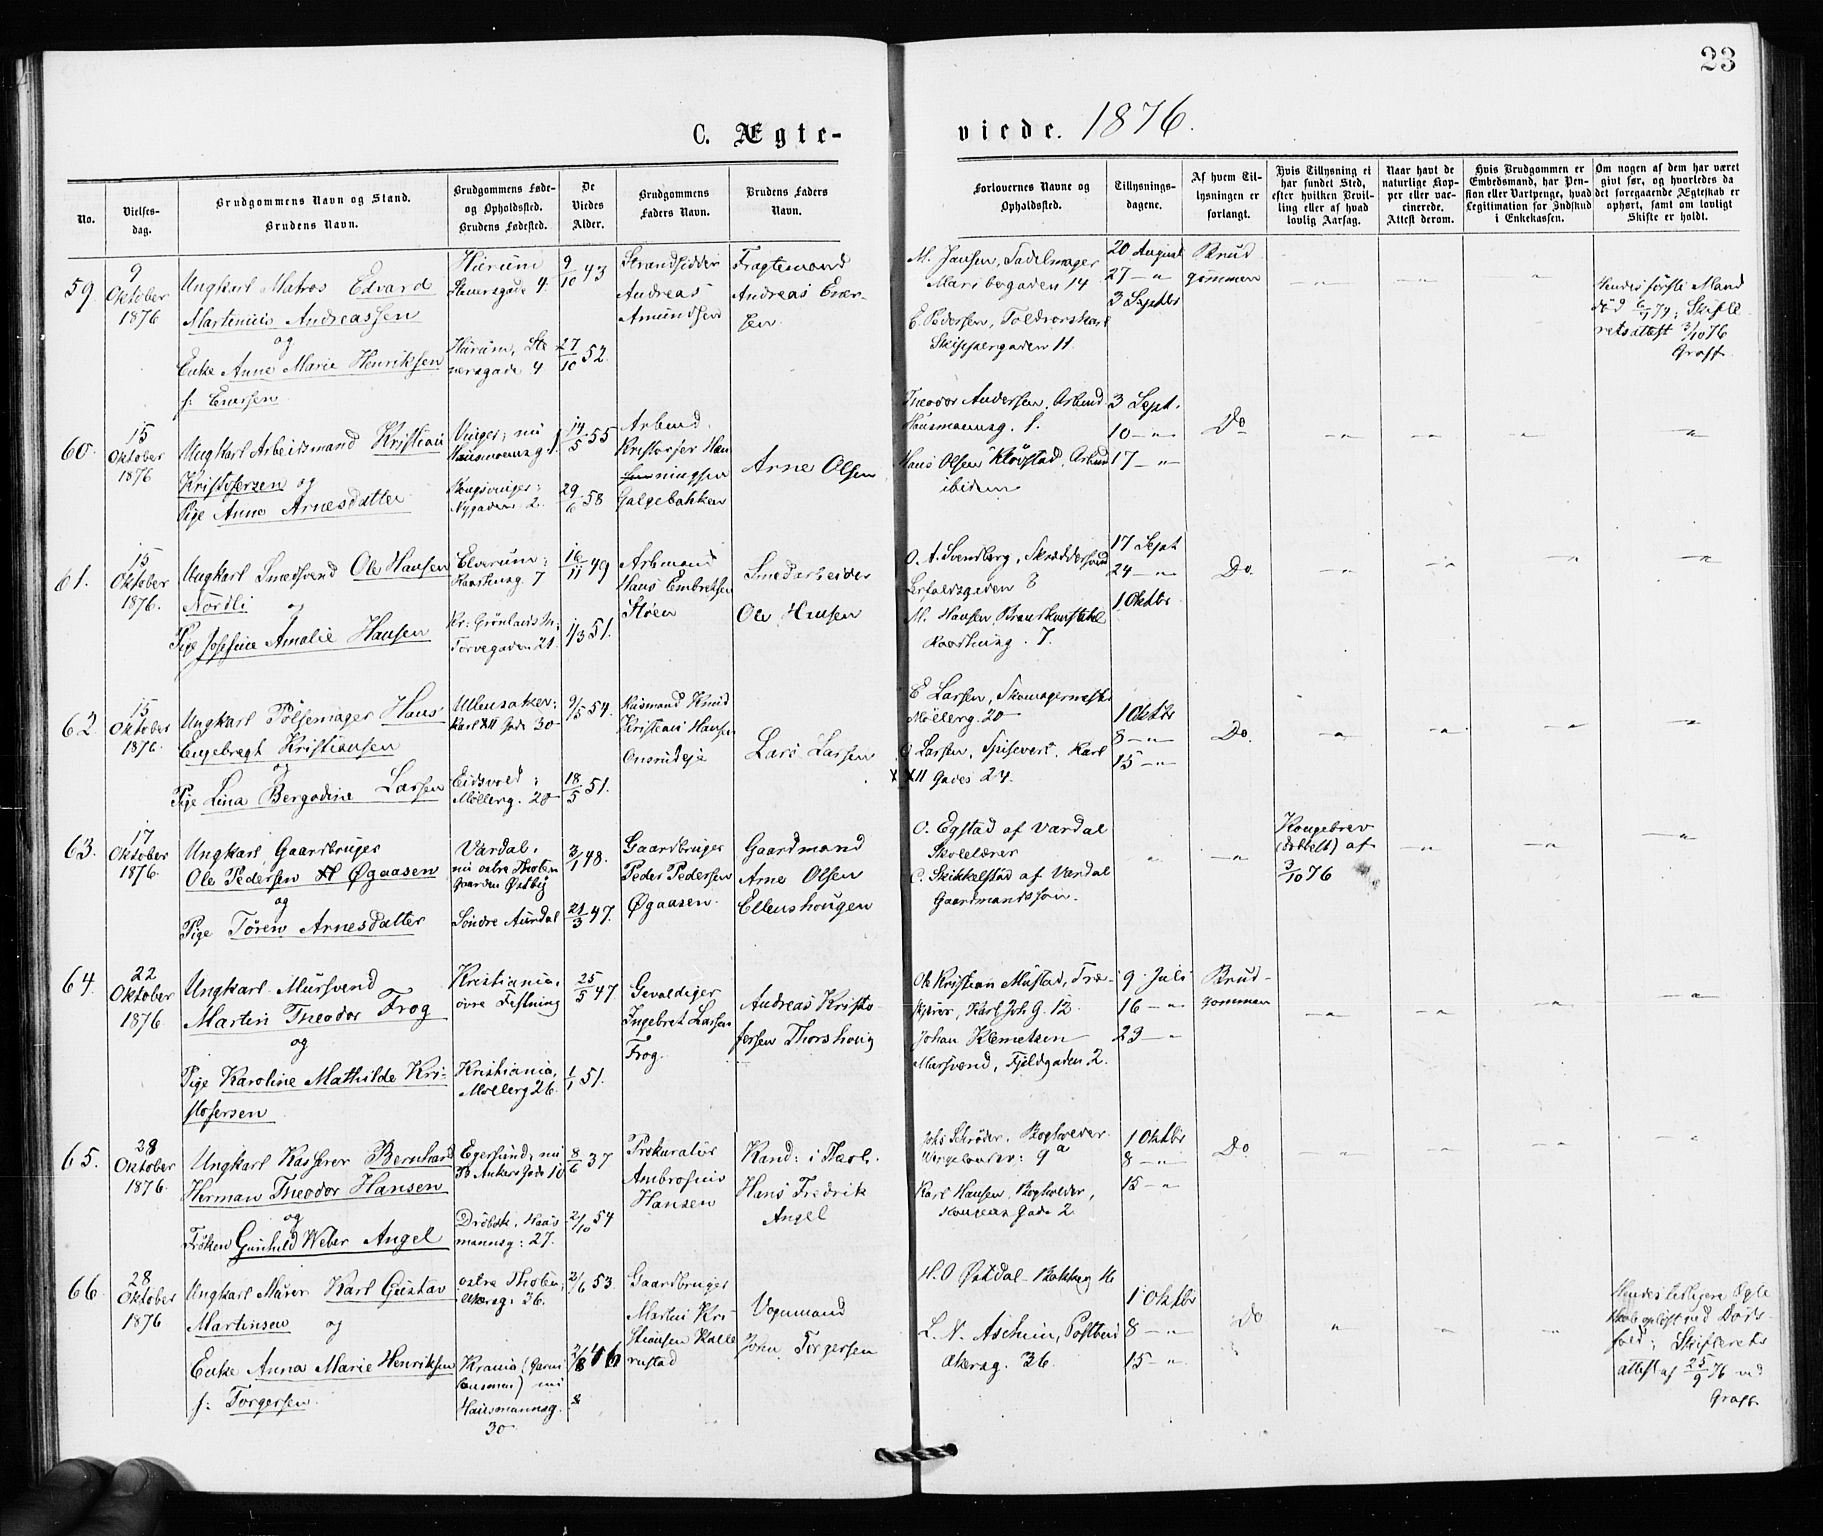 23
C. Ægte-
viede. 1876.
No.
Vielses-
dag.
Brudgommens Navn og Stand.
Brudens Navn.
Brudgommens Føde-
og Opholdssted.
Brudens Fødested.
De
Viedes
Alder.
Brudgommens
Faders Navn.
Brudens Faders
Navn.
Forlovernes Navne og
Opholdssted.
Tillysnings-
dagene.
Af hvem Til-
lysningen er
forlangt.
Hvis Tillysning ei
har fundet Sted,
efter hvilken Bevil-
ling eller af hvad
lovlig Aarsag.
Naar havt de
naturlige Kop-
per eller vac-
cinerede.
Attest derom.
Hvis Brudgommen er
Embedsmand, har Pen-
sion eller Vartpenge, hvad
Legitimation for Indskud
i Enkekassen.
Om nogen af dem har været
givt før, og hvorledes da
det foregaaende Ægteskab er
ophørt, samt om lovligt
Skifte er holdt.
59
9
Oktober
1876
Ungkarl Matros Edvard
Martinius Andreassen
og
Enke Anne Marie Henriksen
f: Enersen
Hurum
Stenersgade 4.
Hurum, Ste
nersgade 4
9/10 43
27/10 52.
Strandsidder
Andreas
Amundsen
Fragtemand
Andreas Ener-
sen.
M. Jansen, Sadelmager
Mariboegaden 14
E. Pedersen, Toldrorskarl
Skippergaden 11.
20 August
27 -"-
3 Septbr
Brud
gommen
-"- -"- "
Hendes første Mand
død 6/1 74; Skifte
retsattest 3/10 76
Graff.
60.
15
Oktober
1876
Ungkarl Arbeidsmand Kristian
Kristofersen og
Pige Anne Arnesdatter
Vinger; nu
Hausmannsg. 1
Kongsvinger;
Nygaden 2.
14/5 55
29/6 58
Arbmd.
Kristoffer Han
ningsen
Galgebakken
Arne Olsen
Theodor Andersen, Arbmd
Hausmannsg. 1.
Hans Olsen Kløvstad, Arbmd
ibidem
3 Sept.
10 -"-
17 -"-
Do
-"- -"- -"- -"-
61.
15
Oktober
1876.
Ungkarl Smedsvend Ole Hansen
Nordli
og
Pige Josefine Amalie Hansen
Elverum;
Raadhusg. 7
Kr: Grønlands M:
Torvegaden 21.
16/11 49
1/3 51.
Arbmand
Hans Embretsen
Støen
Smedarbeider
Ole Hansen
O. A. Svendberg, Skræddersvend
8
M. Hansen,
Raadhusg. 7.
17 Sept
24 -"-
1 Oktbr
Do.
-"- -"- -"- -"-
62.
15
Oktober
1876.
Ungkarl Pølsemager Hans
Engebregt Kristiansen
og
Pige Lina Bergodine Larsen
Ullensaker;
Karl XII Gade 30
Eidsvold;
Møllerg. 20
9/5 54.
18/5 51.
Husmand Knud
Kristian Hansen
Onsrudeje
Lars Larsen
E Larsen, Skomagermester
Møllerg. 20
O. Larsen, Spisevert. Karl
XII Gades 24.
1 Oktbr
8 -"-
15 -"-
Do.
-"- -"- -"- -"-
63.
17
Oktober
1876.
Ungkarl, Gaardbruger
Ole Pedersen Øgaasen
og
Pige Tören Arnesdatter
Vardal;
nu østre Thoten
Gaarden Østby
Søndre Aurdal
3/1 48.
21/3 47.
Gaardbruger
Peder Pedersen
Øgaasen.
Gaardmand
Arne Olsen
Ellenshougen
O. Egstad af Vardal
Skolelærer
C. Skikkelstad af Vardal
Gaardmandssøn.
" -"-
Kongebrev
(dobbelt) af
3/10 76
-"- -"- -"-
64.
22
Oktober
1876
Ungkarl Mursvend
Martin Theodor Frog
og
Pige Karoline Mathilde Kri-
stofersen
Kristiania,
øvre Fæstning
Kristiania,
Møllerg 26.
25/5 47.
1/1 51.
Gevaldiger
Ingebret Larsen
Frog.
Andreas Kristo
fersen Thorshoug
Ole Kristian Mustad, Træ-
skjærer, Karl Joh. G. 12.
Johan Klemetsen
Mursvend, Fjeldgaden 2.
9 Juli
16 -"-
23 -"-
Brud-
gommen
-"- -"- -"- -"-
65.
28
Oktober
1876.
Ungkarl Kasserer Bernhard
Herman Theodor Hansen
og
Frøken Gunhild Weber Angel
Egersund, nu
Ankers Gade 10
Drøbak, Haus
mannsg: 27.
8/6 37
2/10 54
Prokurator
Ambrosius
Hansen
Kand: i Theol.
Hans Fredrik
Angel
Johs Schrøder, Bogholder
9a
Karl Hansen, Bogholder,
Kongens Gade 2.
1 Oktbr
8 -"-
15 -"-
Do
-"- -"- -"- -"-
66.
28
Oktober
1876
Ungkarl Murer Karl Gustav
Martinsen og
Enke Anna Marie Henriksen
f: Torgersen.
østre Thoten;
Akersg: 36.
Krania (Garni
sonsmen) nu
Hausmannsg.
30
2/6 53.
2/8 46
8
Gaardbruger
Martin Kri
stiansen Kalle
rustad
Vognmand
John Torgersen
H. O Østdal Bakkeg 16
L. N. Aschim, Postbud
Akersg. 36.
1 Oktbr
8 -"-
15 -"-
Do
" -"- -"-
Hendes tidligere Ægte
skab opløst ved Døds-
fald; Skifterets
attest af 25/9 76 ved
Graff.